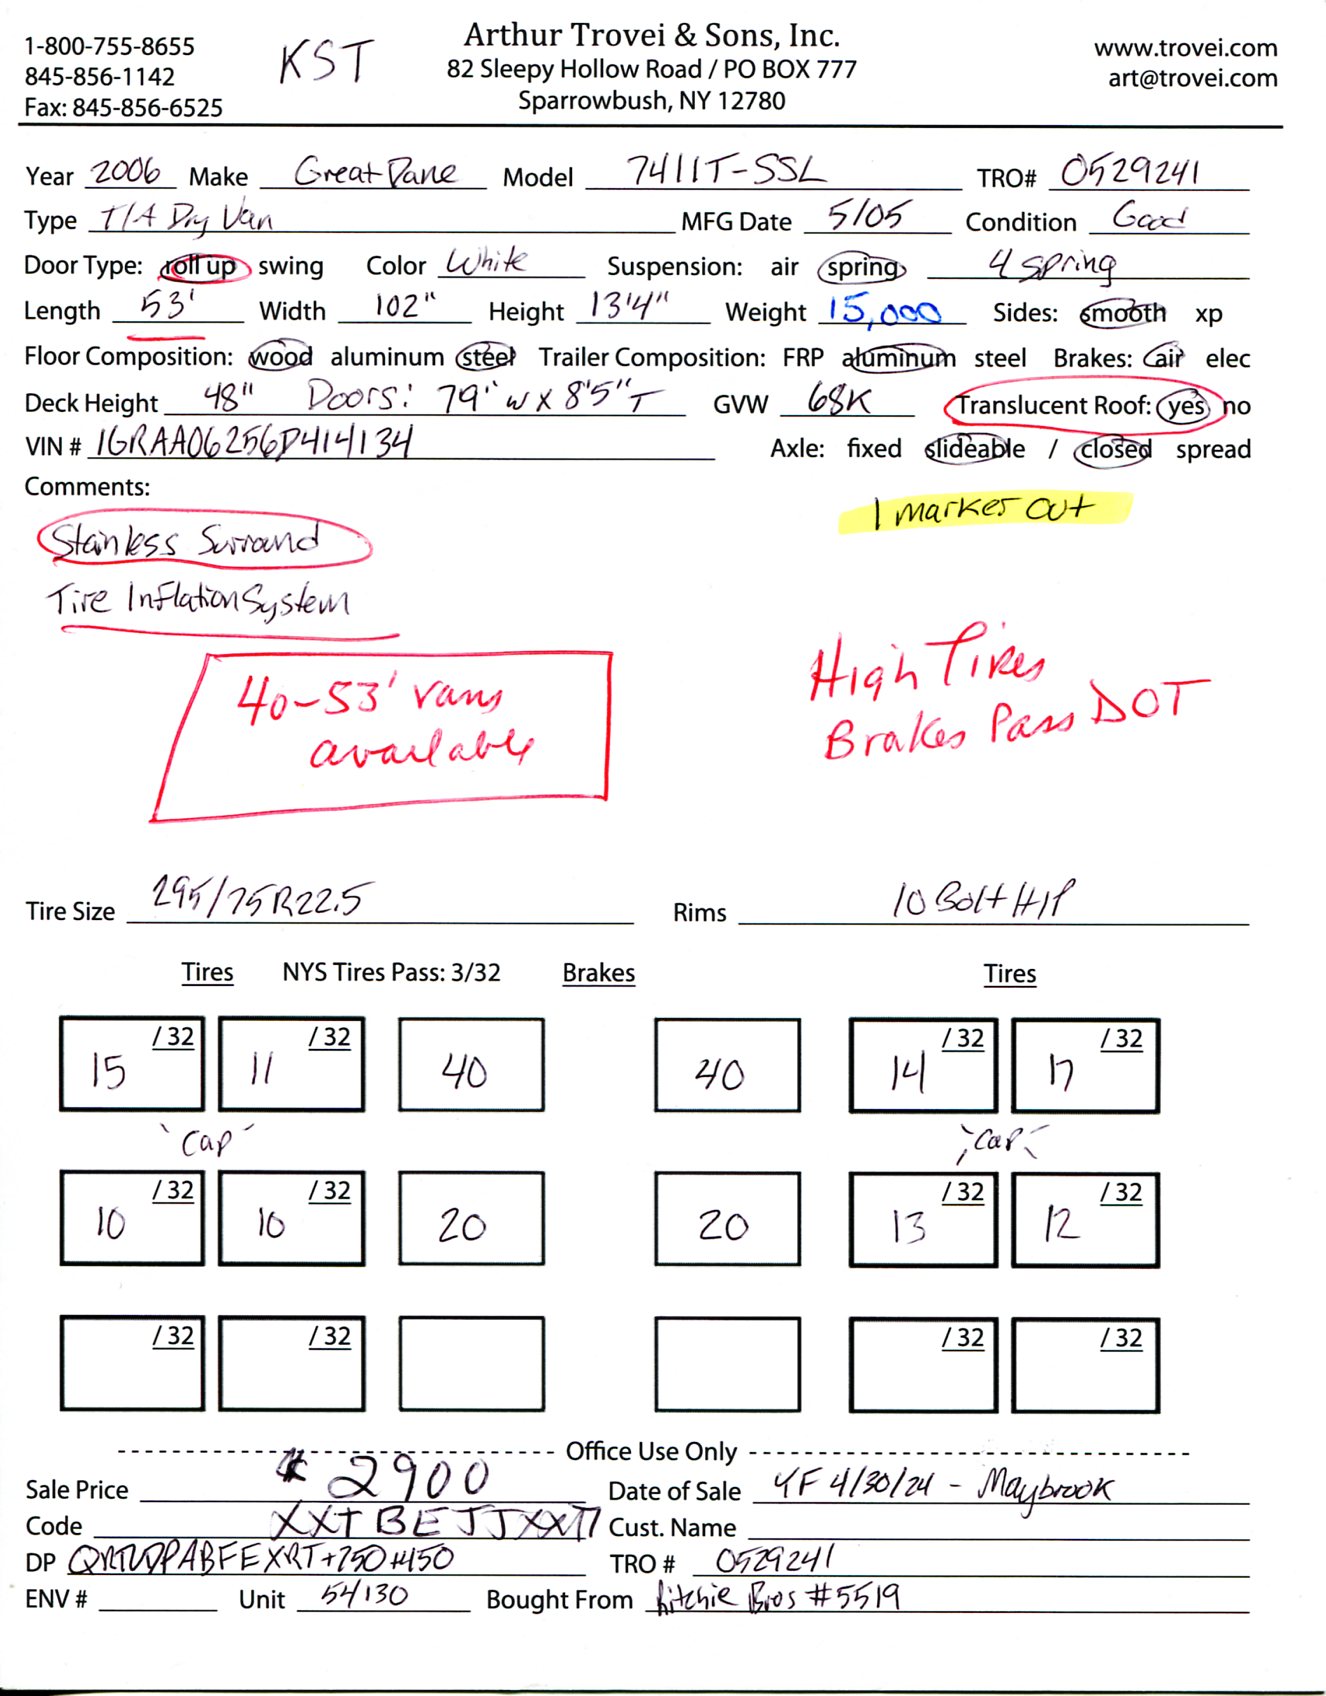 1-800-755-8655
845-856-1142
Fax: 845-856-6525
KST
Arthur Trovei & Sons, Inc.
82 Sleepy Hollow Road / PO BOX 777
Sparrowbush, NY 12780
www.trovei.com
art@trovei.com
Year 2006 Make Great Dane Model 7411T-SSL TRO# 0529241
Type T/A Dry Van MFG Date 5/05 Condition Good
Door Type: roll up swing Color White Suspension: air spring 4 spring
Length 53' Width 102" Height 13'4" Weight 15,000 Sides: smooth xp
Floor Composition: wood aluminum steel Trailer Composition: FRP aluminum steel Brakes: air elec
Deck Height 48" Doors: 79" w x 8'5" T GVW 68K Translucent Roof: yes no
VIN # 1GRAA06256D414134 Axle: fixed slideable / closed spread
Comments:
1 marker out
Stainless Surround
Tire Inflation System
40-53' vans
available
High Tires
Brakes Pass DOT
Tire Size 295/75R22.5 Rims 10 Bolt H/P
Tires NYS Tires Pass: 3/32 Brakes Tires
15 /32 11 /32 40 40 14 /32 17 /32
"Cap" "Cap"
10 /32 10 /32 20 20 13 /32 12 /32
/32 /32 /32 /32
Office Use Only
Sale Price 2900 Date of Sale YF 4/30/24 - Maybrook
Code XXTBEJJXXT7 Cust. Name
DP +750+450 TRO # 0529241
ENV # Unit 54130 Bought From Ritchie Bros #5519